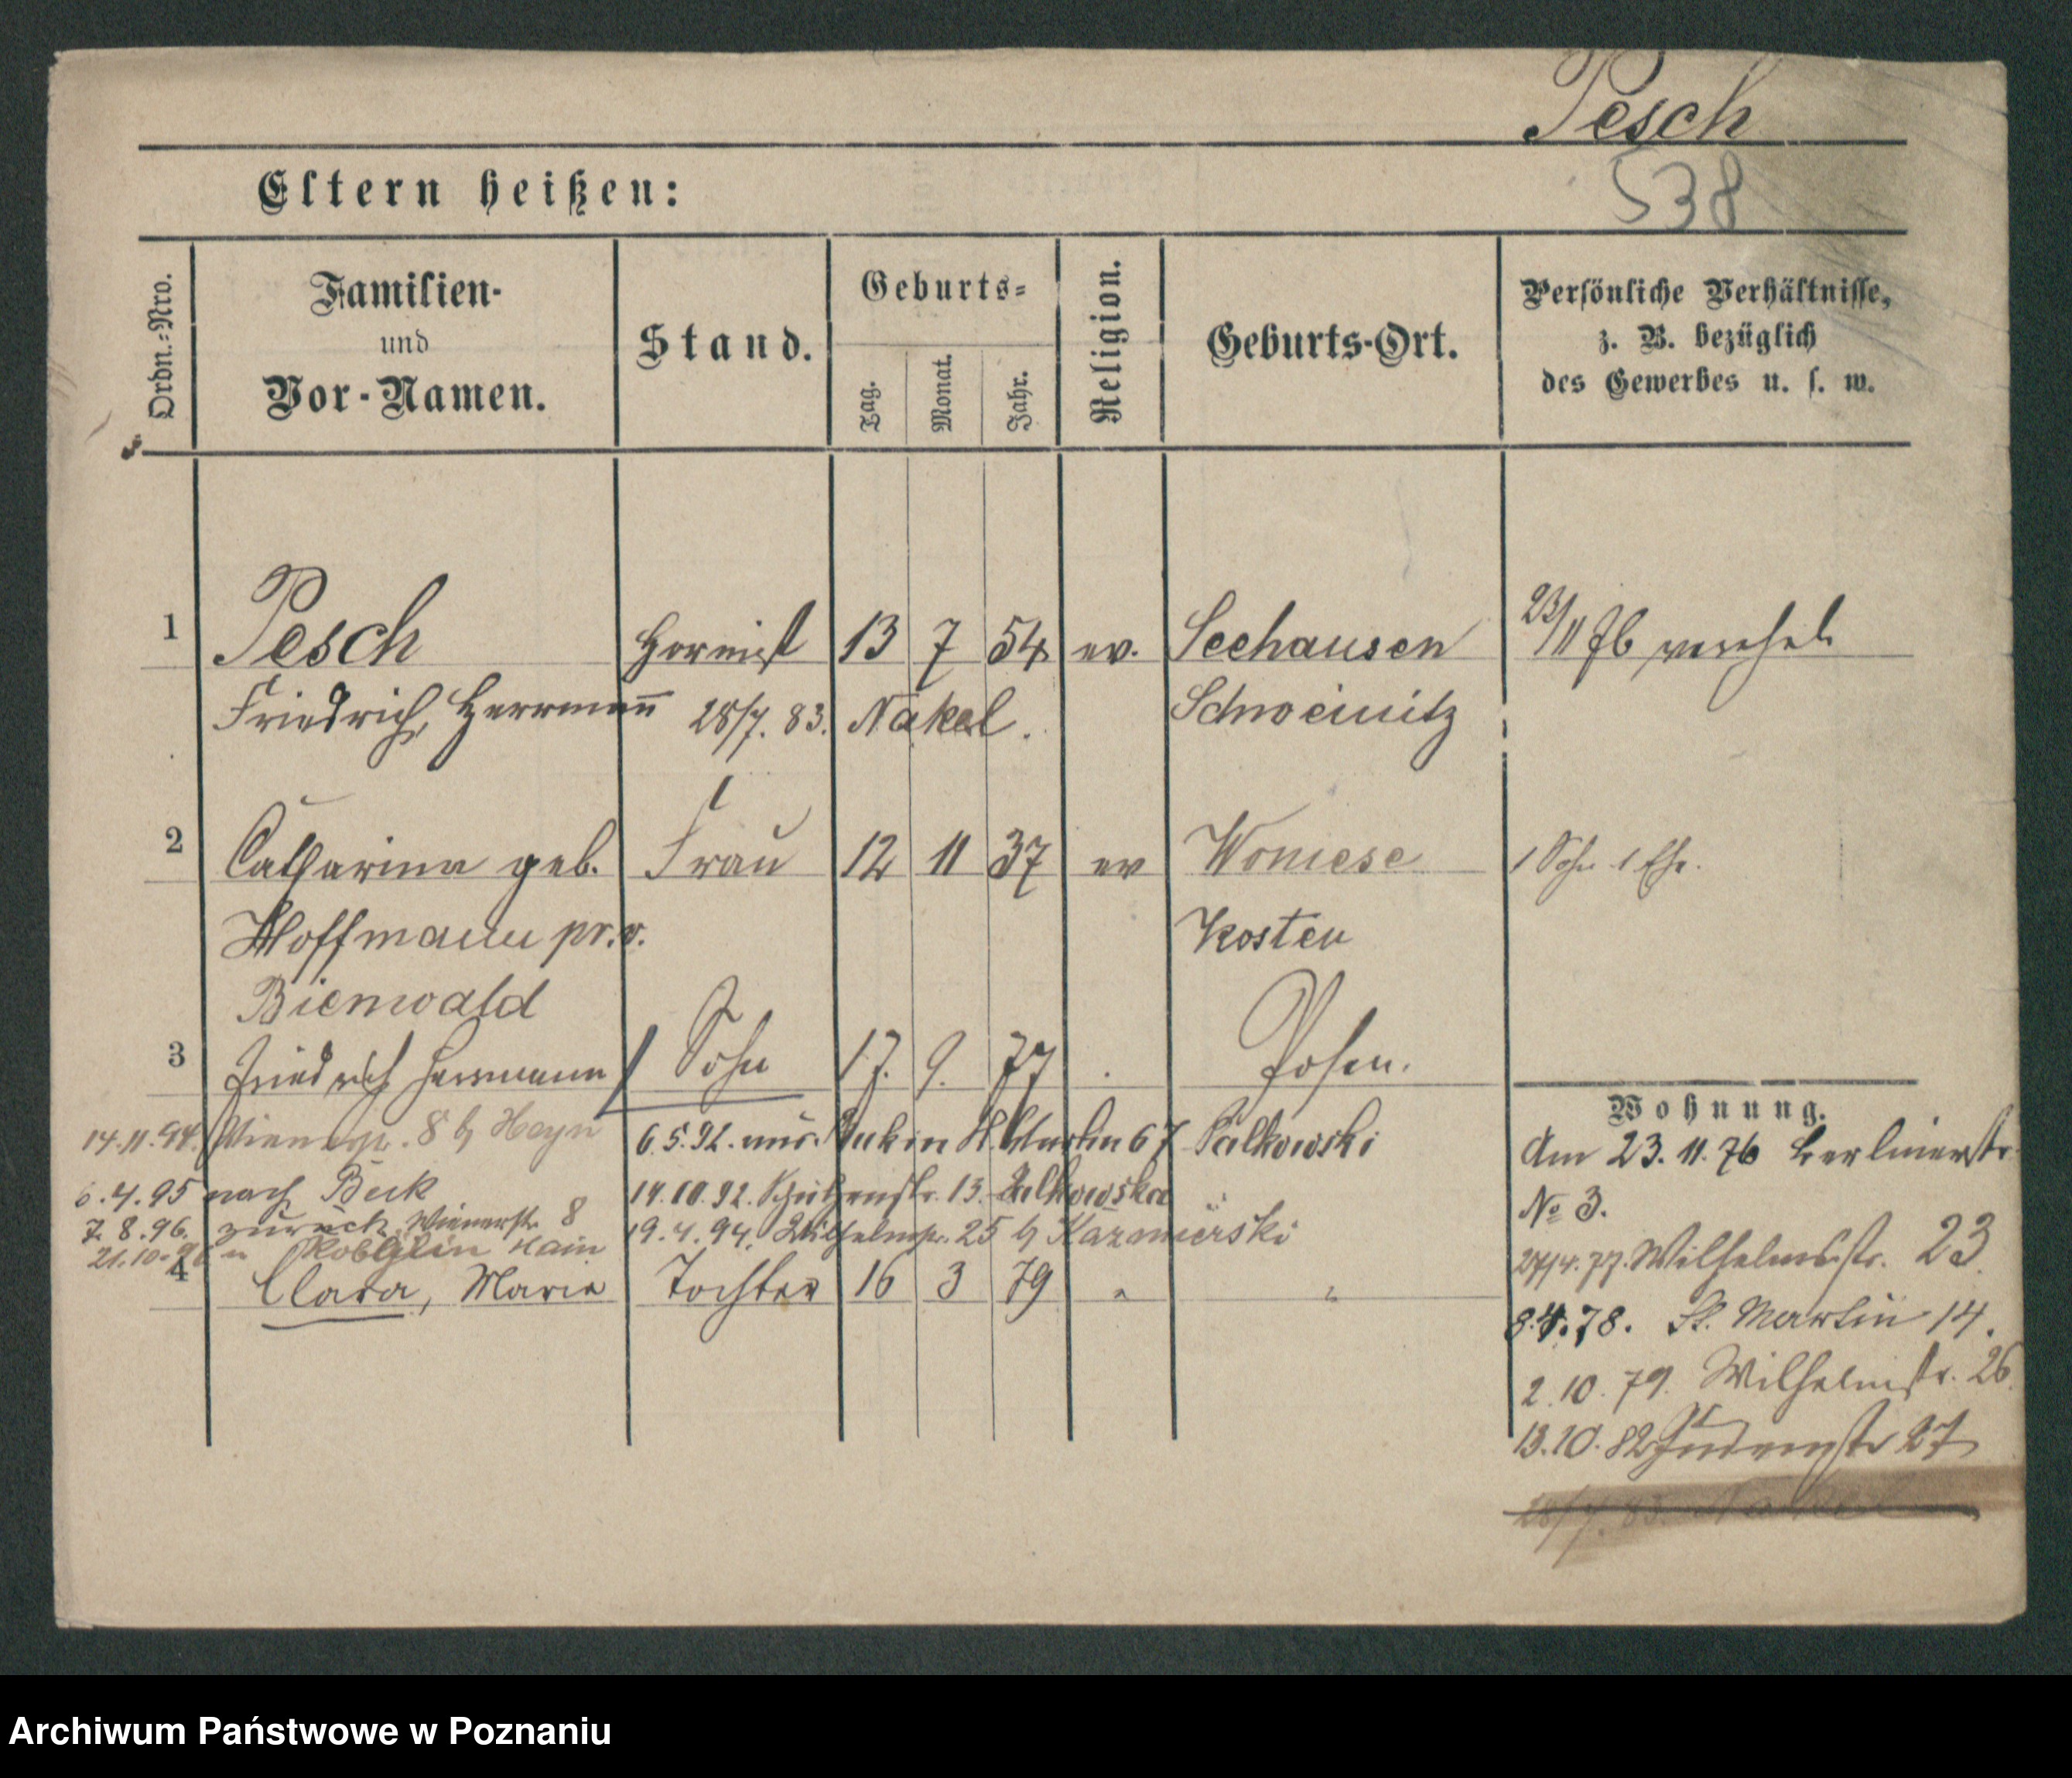 Pesch
538
Eltern heißen:
Ordn.-Nro.
Familien-
und
Vor-Namen.
Stand.
Geburts-
Tag.
Monat.
Jahr.
Religion.
Geburts-Ort.
Persönliche Verhältnisse,
z. B. bezüglich
des Gewerbes u. s. w.
1 Pesch Hornist 13 7 54 ev. Seehausen 23/11 76 verehel.
Friedrich, Herrmann̅ 28/7. 83. Nakel. Schweinitz
2 Catharina geb. Frau 12 11 37 ev Woniesc 1 Sohn 1 Ehe.
Hoffmann pr. v. Kosten
Bienwald
3 Friedrich Herrmann Sohn 17. 9. 77 Posen.
Wohnung.
14.11.94. 8 b/ Heyn 6.5.92. aus St. Martin 67 Palkowski
Am 23.11.76 Berlinerstr.
6.4.95 nach Buk 14.10.92. Schützenstr. 13.
No 3.
7.8.96. zurück Wienerstr. 8 19.4.94. 25 b/ Kazmierski
27/4. 77. Wilhelmsstr. 23
21.10. Hain
4 Clara, Marie Tochter 16 3 79 " "
8.4.78. St. Martin 14.
2.10.79. Wilhelmstr. 26.
13.10.82 Judenstr 27
28/7. 83. Nakel
Archiwum Państwowe w Poznaniu